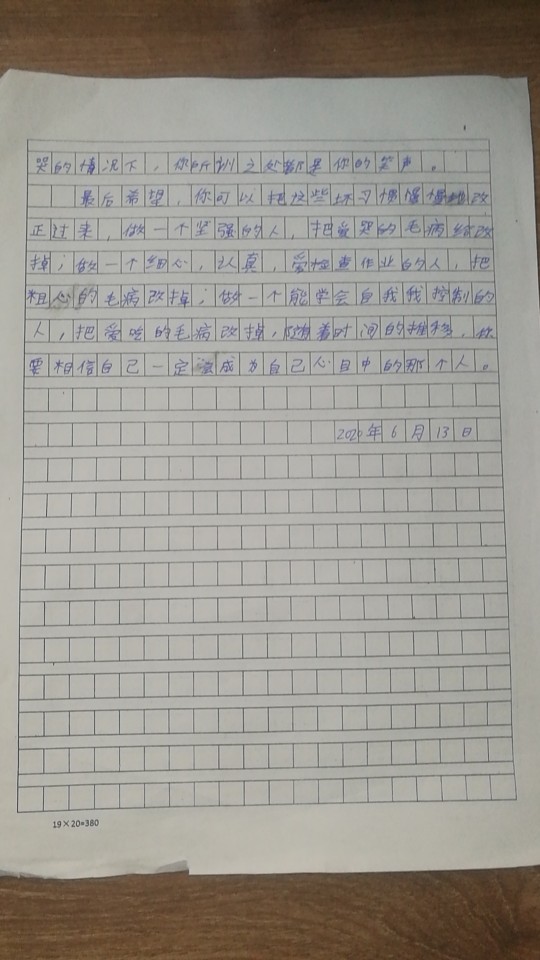 哭的情况下，你所到之处都是你的笑声。
最后希望，你可以把这些坏习惯慢慢地改
正过来，做一个坚强的人，把爱哭的毛病给改
掉；做一个细心，认真，爱检查作业的人，把
粗心的毛病改掉；做一个能学会自我我控制的
人，把爱吃的毛病改掉，随着时间的推移，你
要相信自己一定会成为自己心目中的那个人。
2020年6月13日
19×20=380